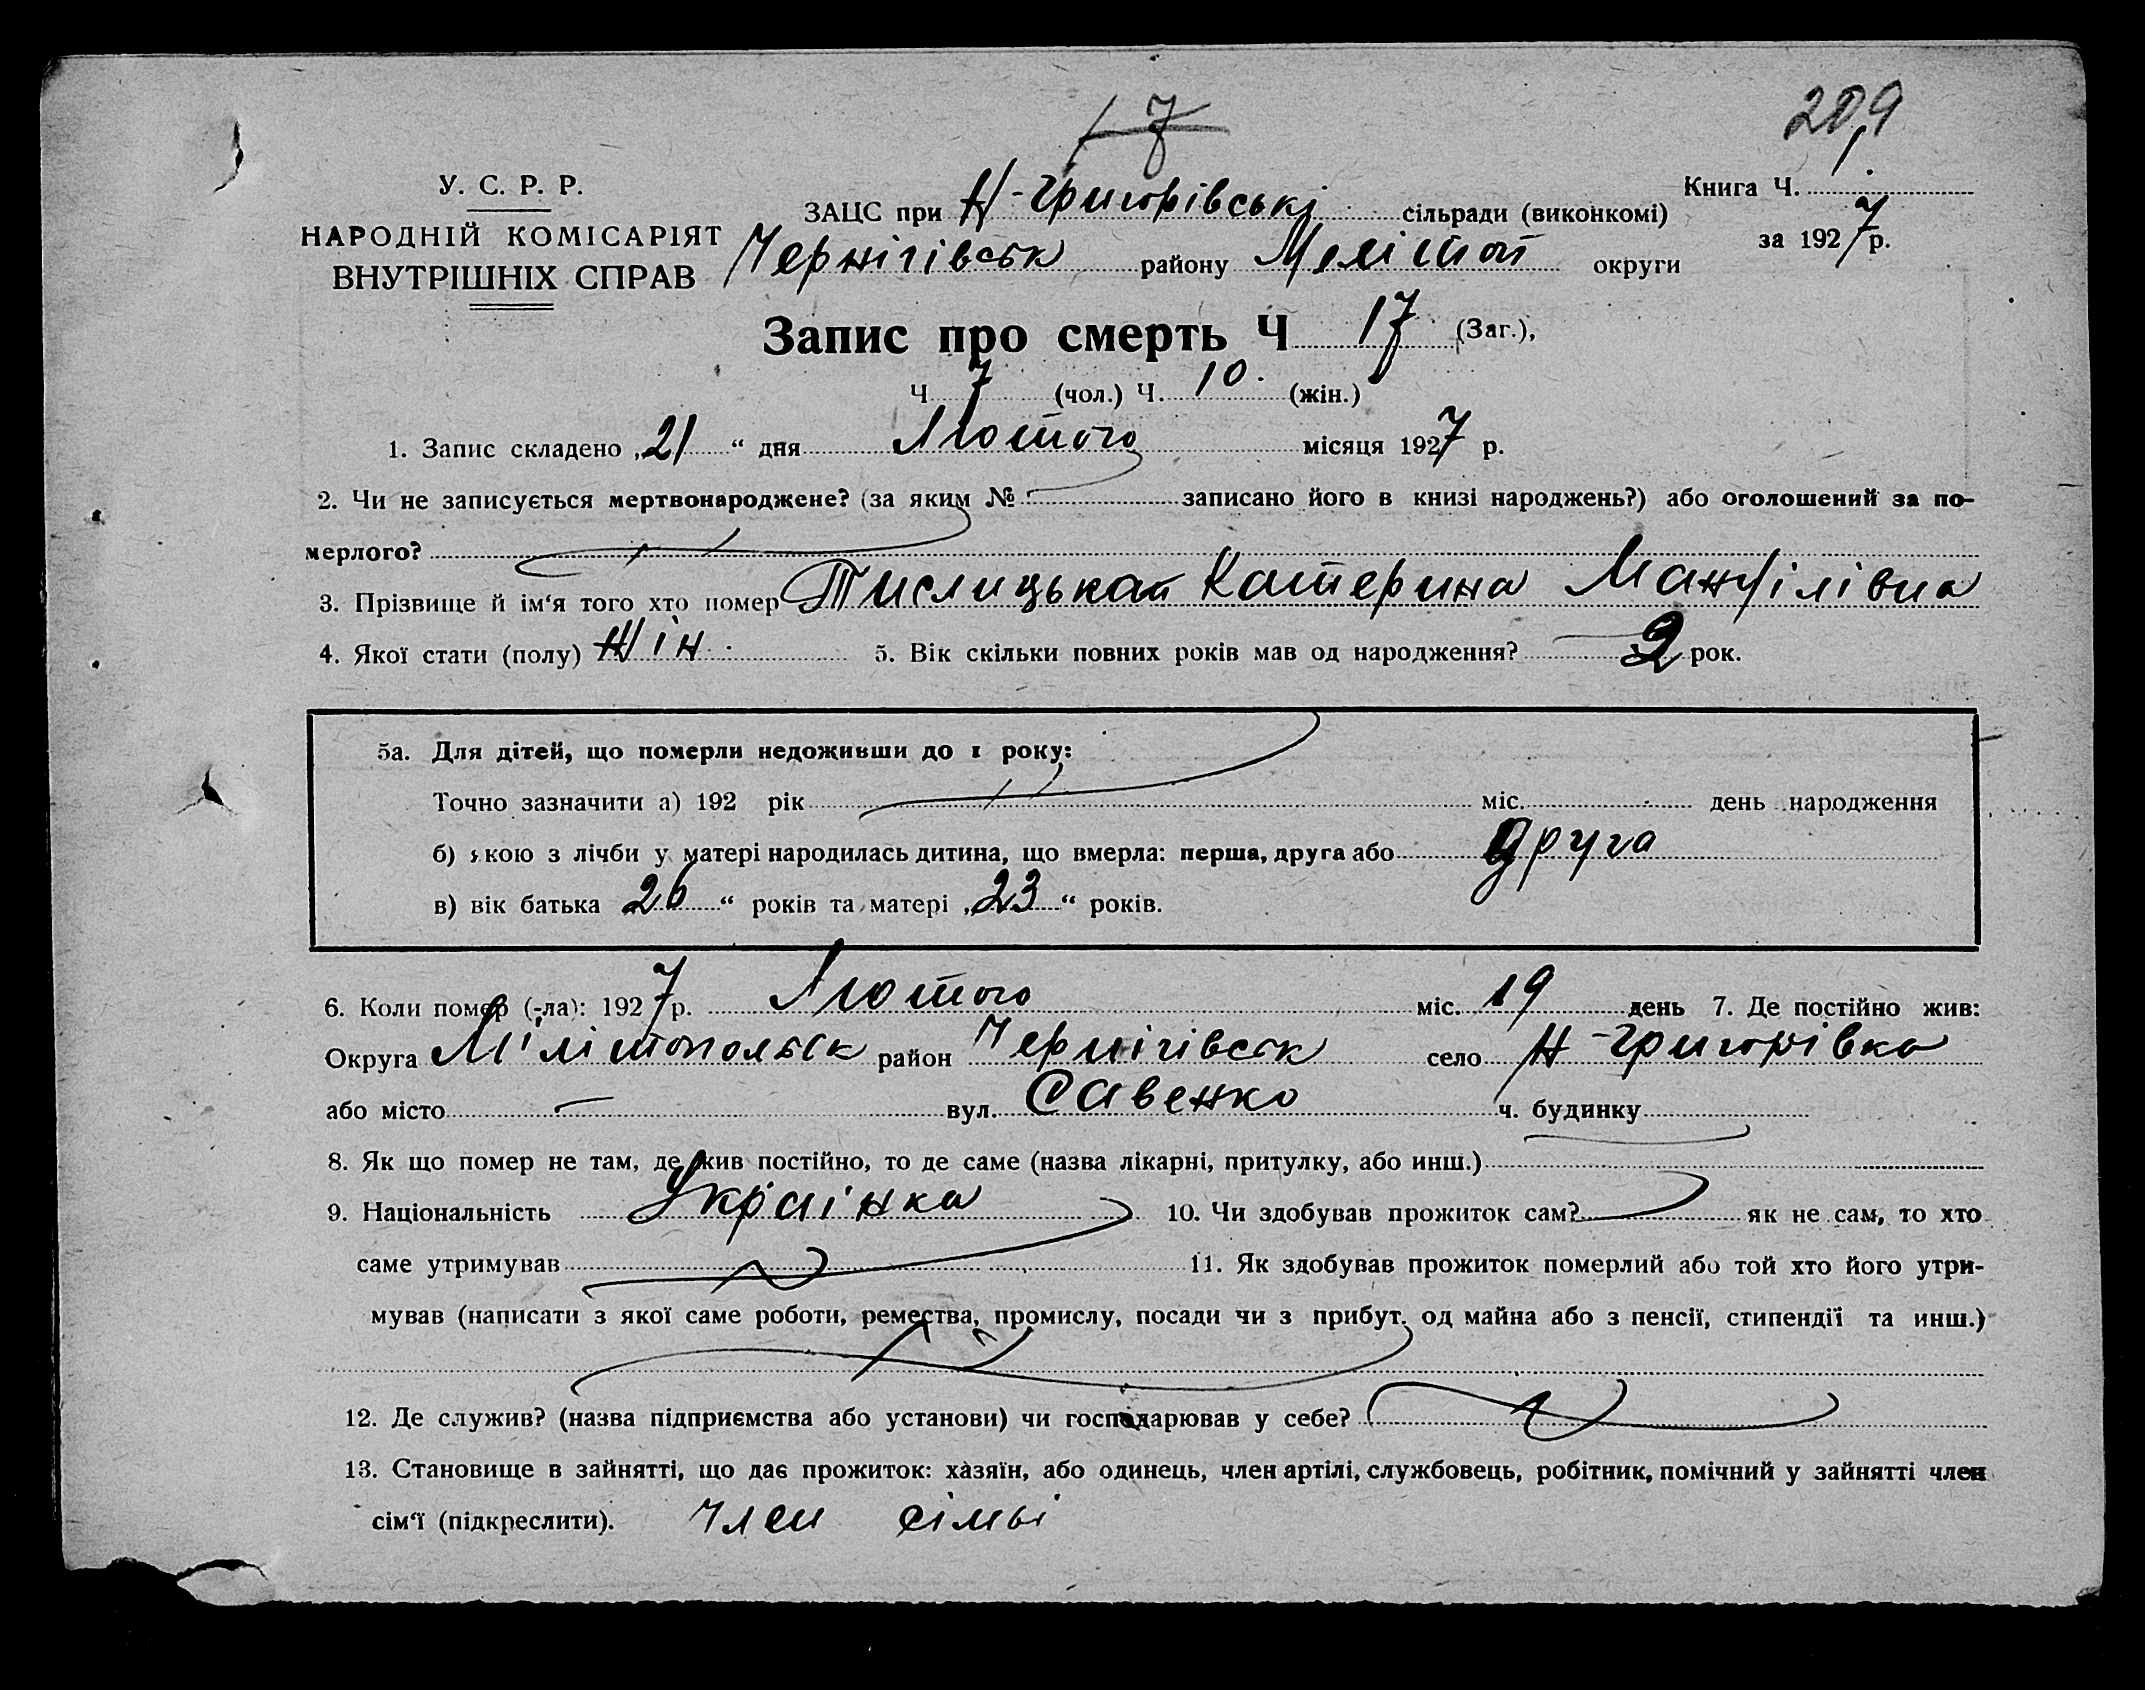 17
209
У. С. Р. Р.
НАРОДНІЙ КОМІСАРІЯТ
ВНУТРІШНІХ СПРАВ
Книга Ч. 1.
за 1927 р.
ЗАЦС при Н-Григорівські сільради (виконкомі)
Чернігівськ району Меліտоп округи
Запис про смерть Ч 17 (Заг.),
Ч 7 (чол.) Ч. 10. (жін.)
1. Запис складено „21“ дня Лютого місяця 1927 р.
2. Чи не записується мертвонароджене? (за яким № записано його в книзі народжень?) або оголошений за по-
мерлого?
3. Прізвище й ім‘я того хто помер Тислицькая Катерина
4. Якої стати (полу) Жін. 5. Вік скільки повних років мав од народження? 2 рок.
5а. Для дітей, що померли недоживши до 1 року:
Точно зазначити а) 192 рік міс. день народження
б) якою з лічби у матері народилась дитина, що вмерла: перша, друга або друга
в) вік батька 26“ років та матері „23“ років.
6. Коли помер (-ла): 1927 р. Лютого міс. 19 день 7. Де постійно жив:
Округа Мілітопольськ район Чернігівськ село Н-Григорівка
або місто вул. Савенко ч. будинку
8. Як що помер не там, де жив постійно, то де саме (назва лікарні, притулку, або инш.)
9. Національність Українка 10. Чи здобував прожиток сам? як не сам, то хто
саме утримував 11. Як здобував прожиток померлий або той хто його утри-
мував (написати з якої саме роботи, ремества, промислу, посади чи з прибут. од майна або з пенсії, стипендії та инш.)
12. Де служив? (назва підприємства або установи) чи господарював у себе?
13. Становище в зайнятті, що дає прожиток: хазяїн, або одинець, член артілі, службовець, робітник, помічний у зайнятті член
сім‘ї (підкреслити). член сімьі